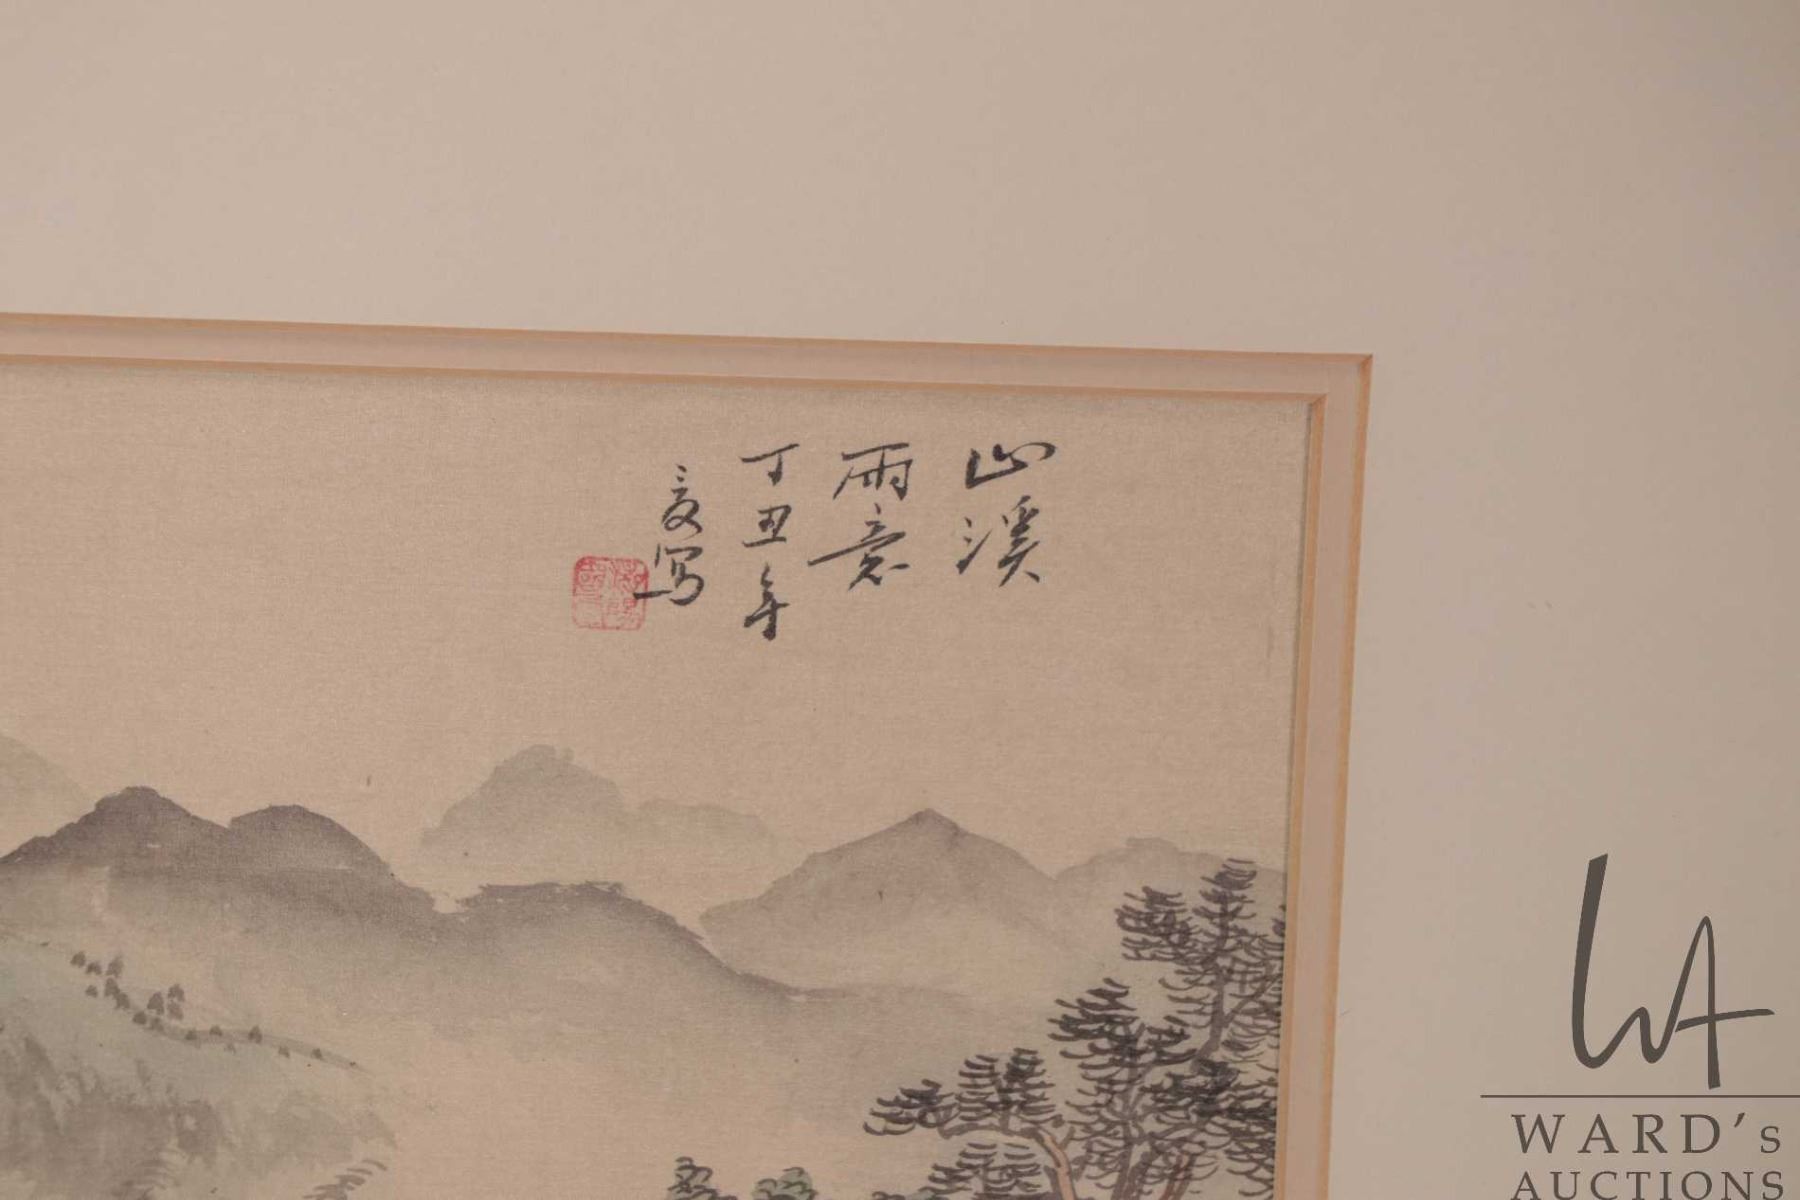 山溪
雨意
丁丑年
写
WARD's
AUCTIONS